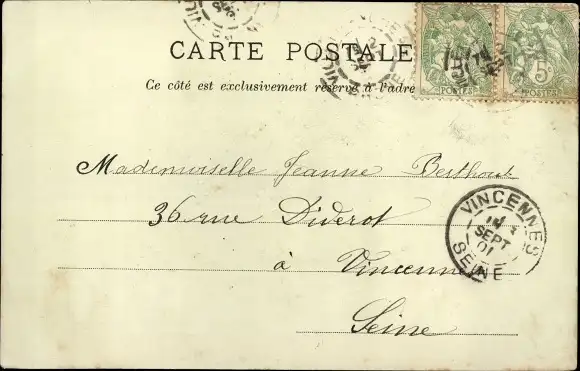 CARTE POSTALE
Ce côté est exclusivement réservé à l'adre
5
POSTES POSTES
Mademoiselle Jeanne Berthout
36 rue Diderot
à Vincennes
Seine
VINCENNES
SEPT
01
SEINE